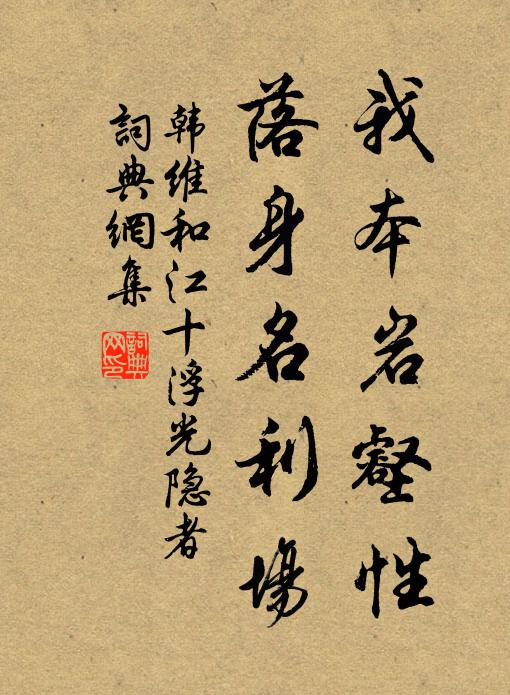 我本岩壑性
落身名利場
韩維和江十浮光隐者
詞典網集
詞典网印